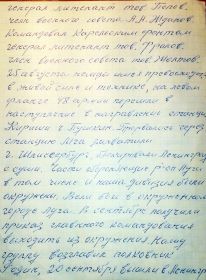 генерал лейтенант тов. Попов.
член военного совета А.А. Жданов.
Командовал Карельским фронтом
генерал лейтенант тов. Фролов.
член военного совета тов. Желтов.
25 августа немцы имея превосходство
в живой силе и технике, на левом
фланге 48 армии перешли в
наступление в направлении станции
Кириши г. Пушкин. Прорвались через
станцию Мга захватили
г. Шлиссербург, блокировали Ленинград
с суши. Части обороняющие р-он Луги
в том числе и наша дивизия были
окружены. Вели бои в окруженном
городе Луга. А сентября получили
приказ главного командования
выходить из окружения. Нашу
группу возглавил полковник
Родин, 20 сентября вышли в Ленинград